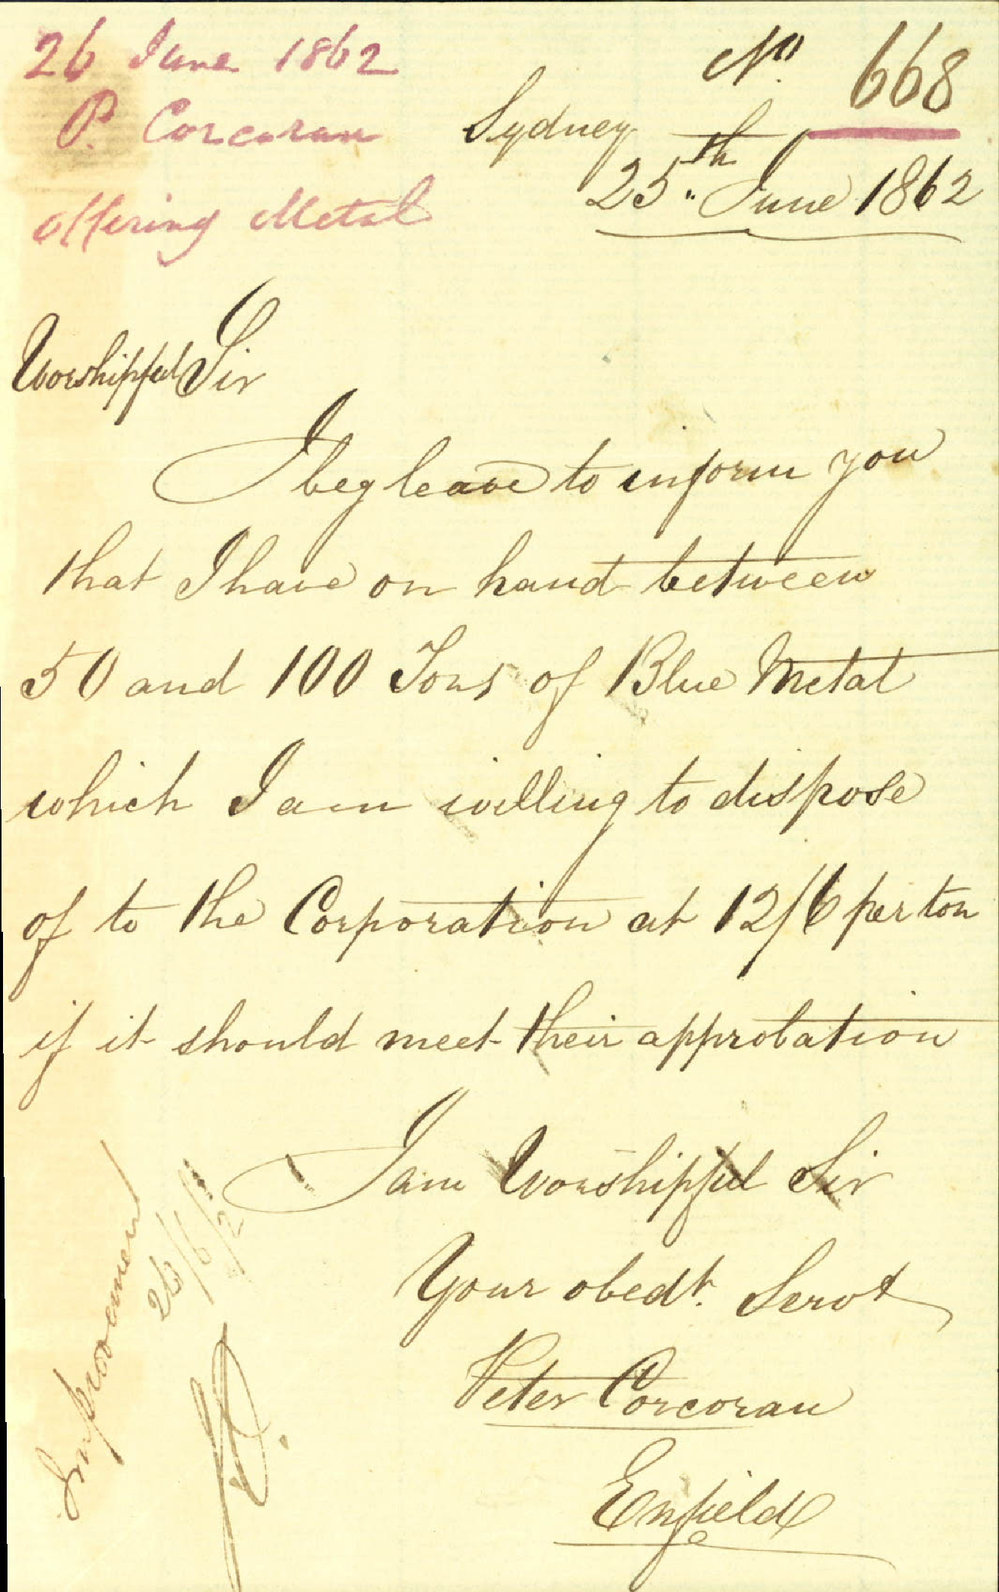 26 June 1862
P. Corcoran
offering Metal
No. 668
Sydney
25th June 1862
Worshipful Sir
I beg leave to inform you
that I have on hand between
50 and 100 Tons of Blue Metal
which I am willing to dispose
of to the Corporation at 12/6 per ton
if it should meet their approbation
I am Worshipful Sir
Your obedt. Servt
Peter Corcoran
Enfield
Improvement
26/6/2